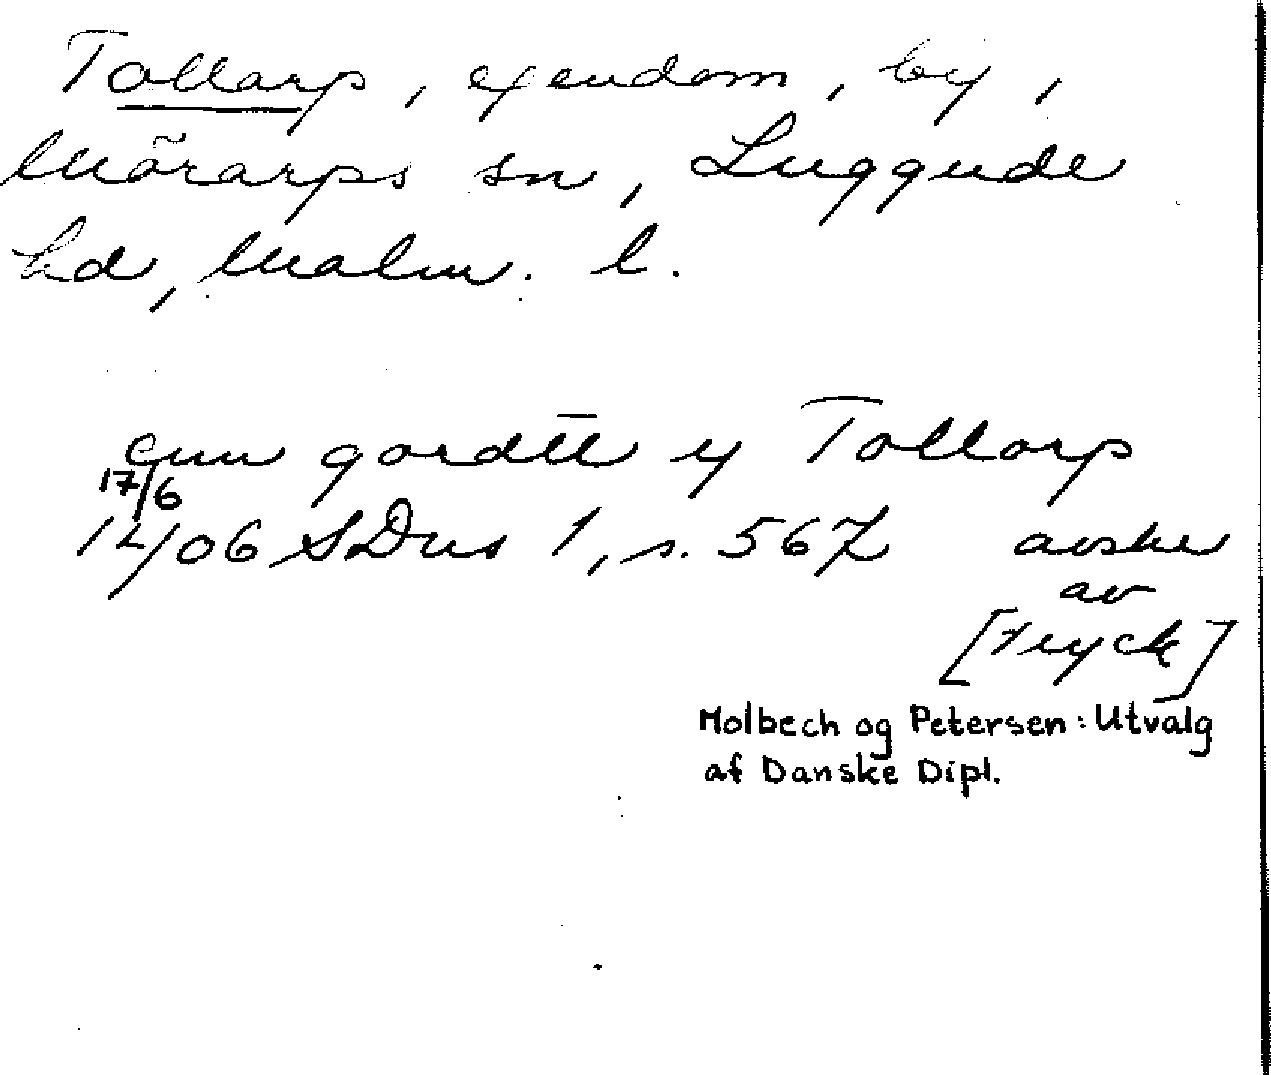 Tollarp, ejendom, by,
Mörarps sn, Luggude
hd, Malm. l.
enn gordtt y Tollorp
17/6
14/06 SDns 1, s. 567 avskr
av
[tryck]
Molbech og Petersen: Utvalg
af Danske Dipl.